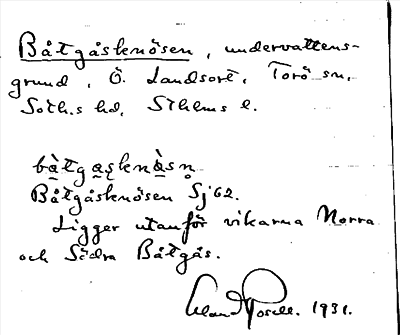 Båtgåsknösen, undervattens-
grund, Ö. Landsort, Torö sn,
Soth.s hd, Sthlms l.
bàtgasknàsn
Båtgåsknösen Sj 62.
Ligger utanför vikarna Norra
och Södra Båtgås.
1931.